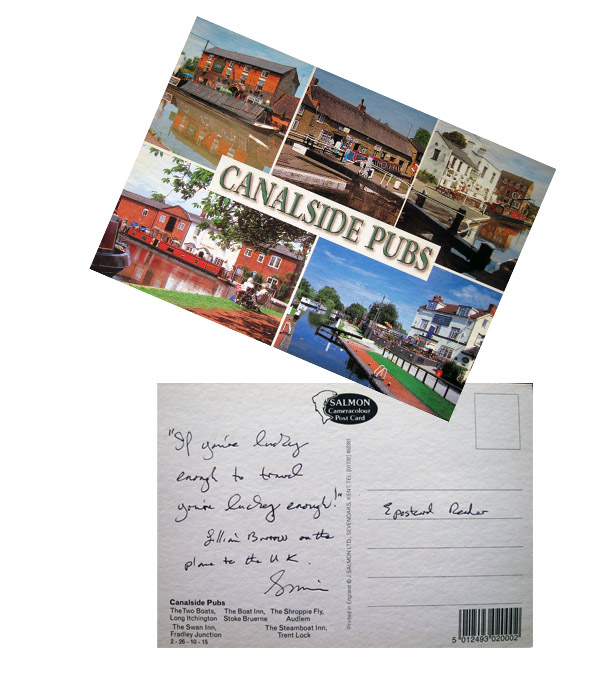 CANALSIDE PUBS
SALMON
Cameracolour
Post Card
"If you're lucky
enough to travel
you're lucky enough!"
Lillian Barrow on the
plane to the U.K.
Epostcard Reader
Canalside Pubs
The Two Boats, Long Itchington
The Boat Inn, Stoke Bruerne
The Shroppie Fly, Audlem
The Swan Inn, Fradley Junction
The Steamboat Inn, Trent Lock
2 - 26 - 10 - 15
Printed in England © J. SALMON LTD., SEVENOAKS, KENT. TEL. (01732) 452381
5 012493 020002